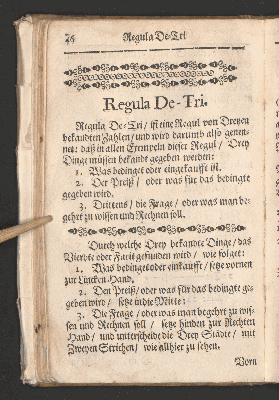 26 Regula De-Tri
Regula De-Tri.
Regula De-Tri/ ist eine Regul von Dreyen
bekandten Zahlen/ und wird darumb also genen-
net: daß in allen Exempeln dieser Regul/ Drey
Dinge müssen bekandt gegeben werden:
1. Was bedinget oder eingekaufft ist.
2. Der Preiß/ oder was für das bedingte
gegeben wird.
3. Drittens/ die Frage/ oder was man be-
gehrt zu wissen und Rechnen soll.
Durch welche Drey bekandte Dinge/ das
Vierdte oder Facit gefunden wird/ wie folget:
1. Was bedinget oder einkaufft/ setze vornen
zur Lincken Hand.
2. Den Preiß/ oder was für das bedingte ge-
geben wird/ setze in die Mitte:
3. Die Frage/ oder was man begehrt zu wis-
sen und Rechnen soll/ setze hinden zur Rechten
Hand/ und unterscheide die Drey Städte/ mit
Zweyen Strichen/ wie allhier zu sehen.
Vorn